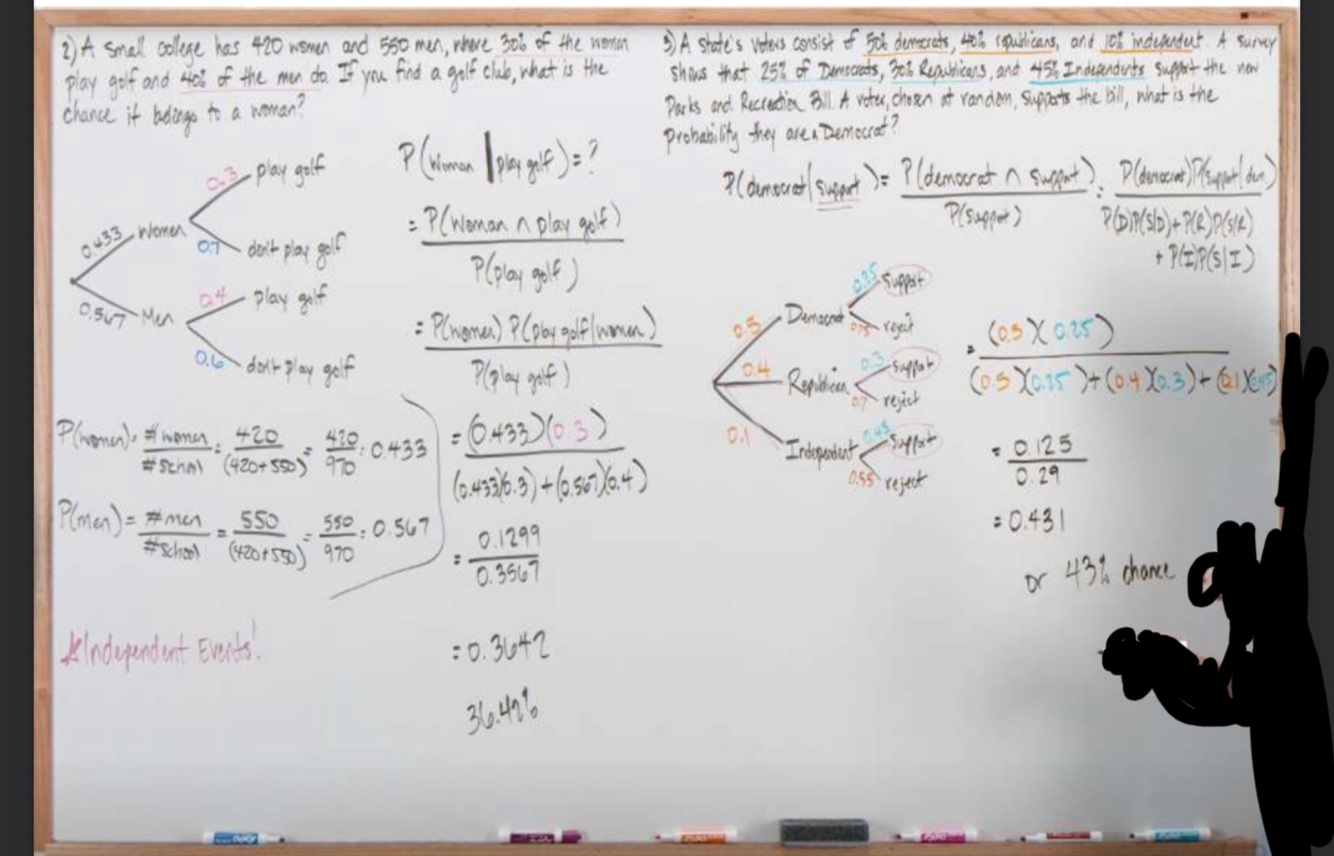 2) A small college has 420 women and 550 men, where 30% of the women
play golf and 40% of the men do. If you find a golf club, what is the
chance it belongs to a woman?
P(woman | play golf) = ?
= P(woman ∩ play golf) / P(play golf)
= P(women) P(play golf | women) / P(play golf)
0.433 Women
0.3 play golf
0.7 don't play golf
0.567 Men
0.4 play golf
0.6 don't play golf
P(women) = #women / #school = 420 / (420+550) = 420 / 970 = 0.433
P(men) = #men / #school = 550 / (420+550) = 550 / 970 = 0.567
= (0.433)(0.3) / (0.433)(0.3)+(0.567)(0.4)
= 0.1299 / 0.3567
= 0.3642
36.42%
*Independent Events!
3) A state's voters consist of 50% democrats, 40% republicans, and 10% independent. A survey
shows that 25% of Democrats, 30% Republicans, and 45% Independents support the new
Parks and Recreation Bill. A voter, chosen at random, supports the bill, what is the
probability they are a Democrat?
P(democrat | support) = P(democrat ∩ support) / P(support) = P(democrat)P(support | dem) / P(D)P(S|D)+P(R)P(S|R)
+ P(I)P(S|I)
0.5 Democrat
0.25 support
0.75 reject
0.4 Republican
0.3 support
0.7 reject
0.1 Independent
0.45 support
0.55 reject
= (0.5)(0.25) / (0.5)(0.25)+(0.4)(0.3)+(0.1)(0.45)
= 0.125 / 0.29
= 0.431
or 43% chance